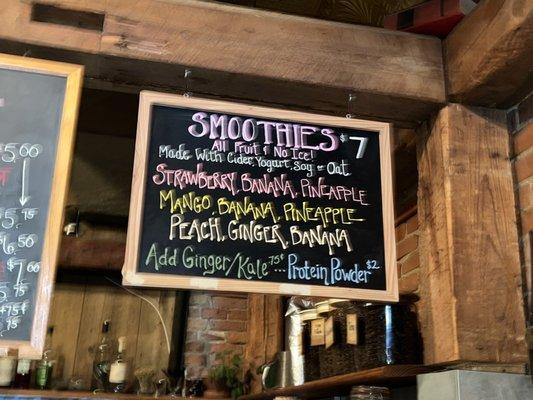 SMOOTHIES $7
All Fruit & No Ice!
Made With Cider, Yogurt, Soy or Oat
STRAWBERRY, BANANA, PINEAPPLE
MANGO, BANANA, PINEAPPLE
PEACH, GINGER, BANANA
Add Ginger/Kale .75¢ ... Protein Powder $2
5.00
5.75
6.50
$7.00
5.75